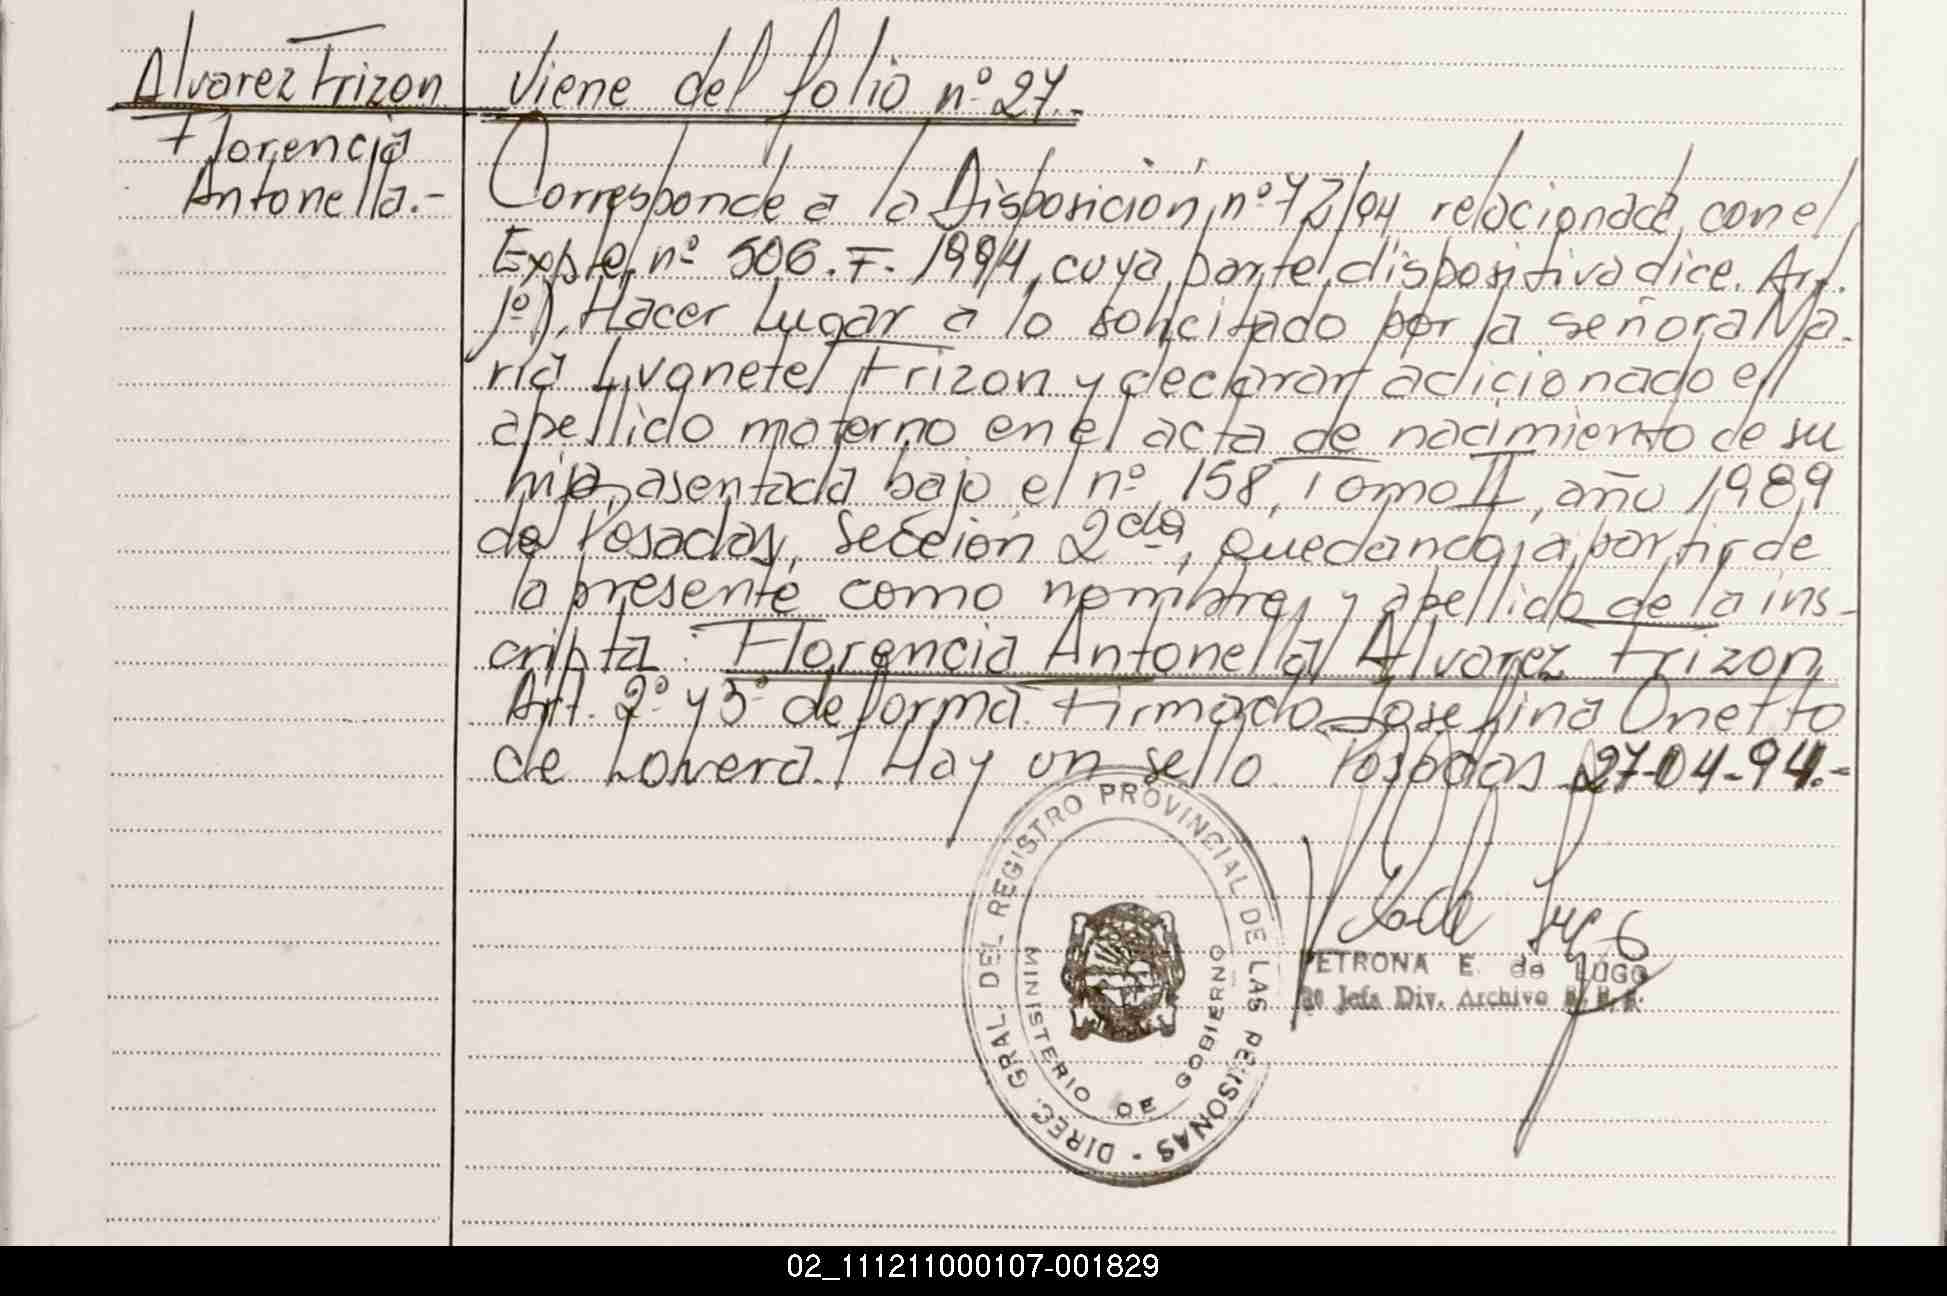 Alvarez Frizon
Florencia
Antonella.-
Viene del folio nº 27.-
Corresponde a la Disposición, nº 72/94 relacionada con el
Expte, nº 506. F. 1994, cuya parte dispositiva dice. Art.
1º), Hacer Lugar a lo solicitado por la señora Ma-
ria Livanete Frizon y declarar adicionado el
apellido materno en el acta de nacimiento de su
hija, asentada bajo el nº 158, Tomo II, año 1989
de Posadas, Sección 2da, quedando, a partir de
la presente como nombre y apellido de la ins-
cripta: Florencia Antonella Alvarez Frizon
Art. 2º y 3º de forma. Firmado Josefina Onetto
de Lovera. Hay un sello. Posadas 27-04-94.-
DIREC. GRAL. DEL REGISTRO PROVINCIAL DE LAS PERSONAS -
MINISTERIO DE GOBIERNO
PETRONA E. de LUGO
Jefa Div. Archivo
02_111211000107-001829